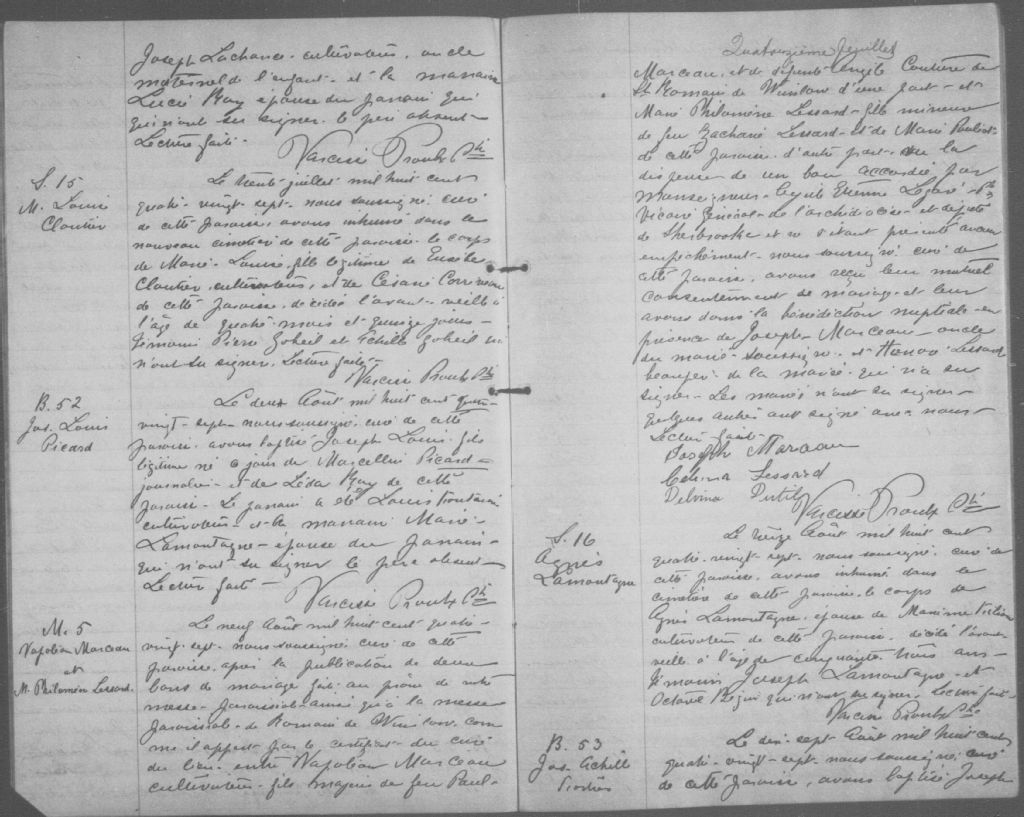 Joseph Lachance, cultivateur, oncle
maternel de l'enfant et la marraine
Lucie Roy épouse du parrain qui
qui n'ont su signer. le père absent
Lecture faite.
Narcisse Proulx Ptre
S. 15
M. Louise
Cloutier
Le trente juillet mil huit cent
quatre-vingt-sept nous soussigné curé
de cette paroisse, avons inhumé dans le
nouveau cimetière de cette paroisse le corps
de Marie-Louise fille légitime de Eusèbe
Cloutier, cultivateur, et de Césarie
de cette paroisse, décédée l'avant-veille à
l'âge de quatre mois et quinze jours
Témoins Pierre Goheil et Achille Goheil qui
n'ont su signer. Lecture faite
Narcisse Proulx Ptre
B. 52
Jos. Louis
Picard
Le deux Août mil huit cent quatre-
vingt-sept nous soussigné, curé de cette
paroisse, avons baptisé Joseph Louis, fils
légitime né ce jour de Marcellin Picard
journalier et de Léda Roy de cette
paroisse. Le parrain a été Louis
cultivateur et la marraine Marie
Lamontagne épouse du parrain
qui n'ont su signer le père absent
Lecture faite
Narcisse Proulx Ptre
M. 5
Napoléon Marceau
et
M. Philomène Lessard
Le neuf Août mil huit cent quatre-
vingt-sept nous soussigné curé de cette
paroisse, après la publication de deux
bans de mariage faite au prône de notre
messe paroissiale ainsi qu'à la messe
paroissiale de Romain de Winslow, com
me il appert par le certificat du curé
du lieu entre Napoléon Marceau
cultivateur fils majeur de feu Paul
Quatorzième feuillet
Marceau, et de défunte Couture de
St Romain de Winslow d'une part et
Marie Philomène Lessard fille mineure
de feu Zacharie Lessard et de Marie Pouliot
de cette paroisse d'autre part vu la
dispense de un ban accordée par
Monseigneur Etienne Légaré Ptre
Vicaire Général de l'archidiocèse et député
de Sherbrooke et ne s'étant présenté aucun
empêchement nous soussigné curé de
cette paroisse, avons reçu leur mutuel
consentement de mariage et leur
avons donné la bénédiction nuptiale en
présence de Joseph Marceau oncle
du marié soussigné et Honoré Lessard
beau-père de la mariée qui n'a su
signer. Les mariés n'ont su signer
quelques autres ont signé avec nous
Lecture faite
Joseph Marceau
Celina Lessard
Delvina
Narcisse Proulx Ptre
S. 16
Agnès
Lamontagne
Le treize Août mil huit cent
quatre-vingt-sept nous soussigné curé de
cette paroisse, avons inhumé dans le
cimetière de cette paroisse le corps de
Agnès Lamontagne, épouse de Maxime
cultivateur de cette paroisse, décédée l'avant-
veille à l'âge de cinquante trois ans
Témoins Joseph Lamontagne et
Octave qui n'ont su signer. Lecture faite
Narcisse Proulx Ptre
B. 53
Jos. Achille
Le dix-sept Août mil huit cent
quatre-vingt-sept nous soussigné, curé
de cette paroisse, avons baptisé Joseph